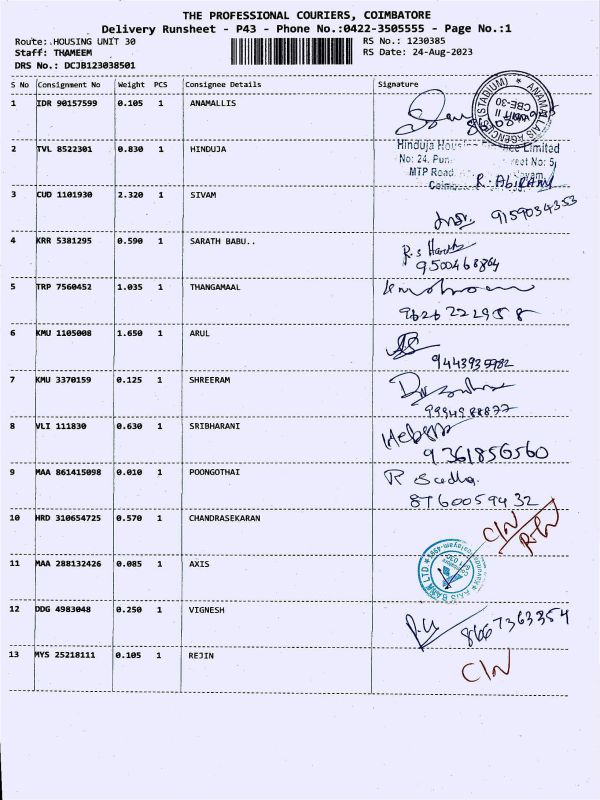 THE PROFESSIONAL COURIERS, COIMBATORE
Delivery Runsheet - P43 - Phone No.:0422-3505555 - Page No.:1
Route: HOUSING UNIT 30 RS No.: 1230385
Staff: THAMEEM RS Date: 24-Aug-2023
DRS No.: DCJB123038501
S No Consignment No Weight PCS Consignee Details Signature
1 IDR 90157599 0.105 1 ANAMALLIS
(STADIUM) * ANAMALLAIS AGENCIES UNIT II CBE-30
2 TVL 8522301 0.830 1 HINDUJA
Hinduja Limited
No: 24, No: 5,
MTP Road
R. ABIRAMI
3 CUD 1101930 2.320 1 SIVAM
9159034353
4 KRR 5381295 0.590 1 SARATH BABU..
9500468864
5 TRP 7560452 1.035 1 THANGAMAAL
9626722958
6 KMU 1105008 1.650 1 ARUL
7 KMU 3370159 0.125 1 SHREERAM
9994988877
8 VLI 111830 0.630 1 SRIBHARANI
9361856560
9 MAA 861415098 0.010 1 POONGOTHAI
R Sudha.
8760059432
10 HRD 310654725 0.570 1 CHANDRASEKARAN
C/N
11 MAA 288132426 0.085 1 AXIS
AXIS BANK LTD
12 DDG 4983048 0.250 1 VIGNESH
8667363354
13 MYS 25218111 0.105 1 REJIN
C/N